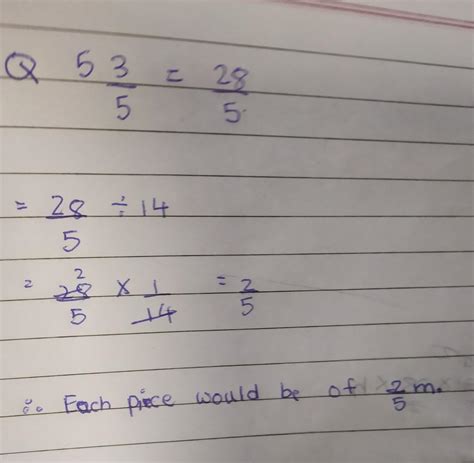 Q 5 3/5 = 28/5
= 28/5 ÷ 14
= 28/5 2 × 1/14 = 2/5
∴ Each piece would be of 2/5 m.